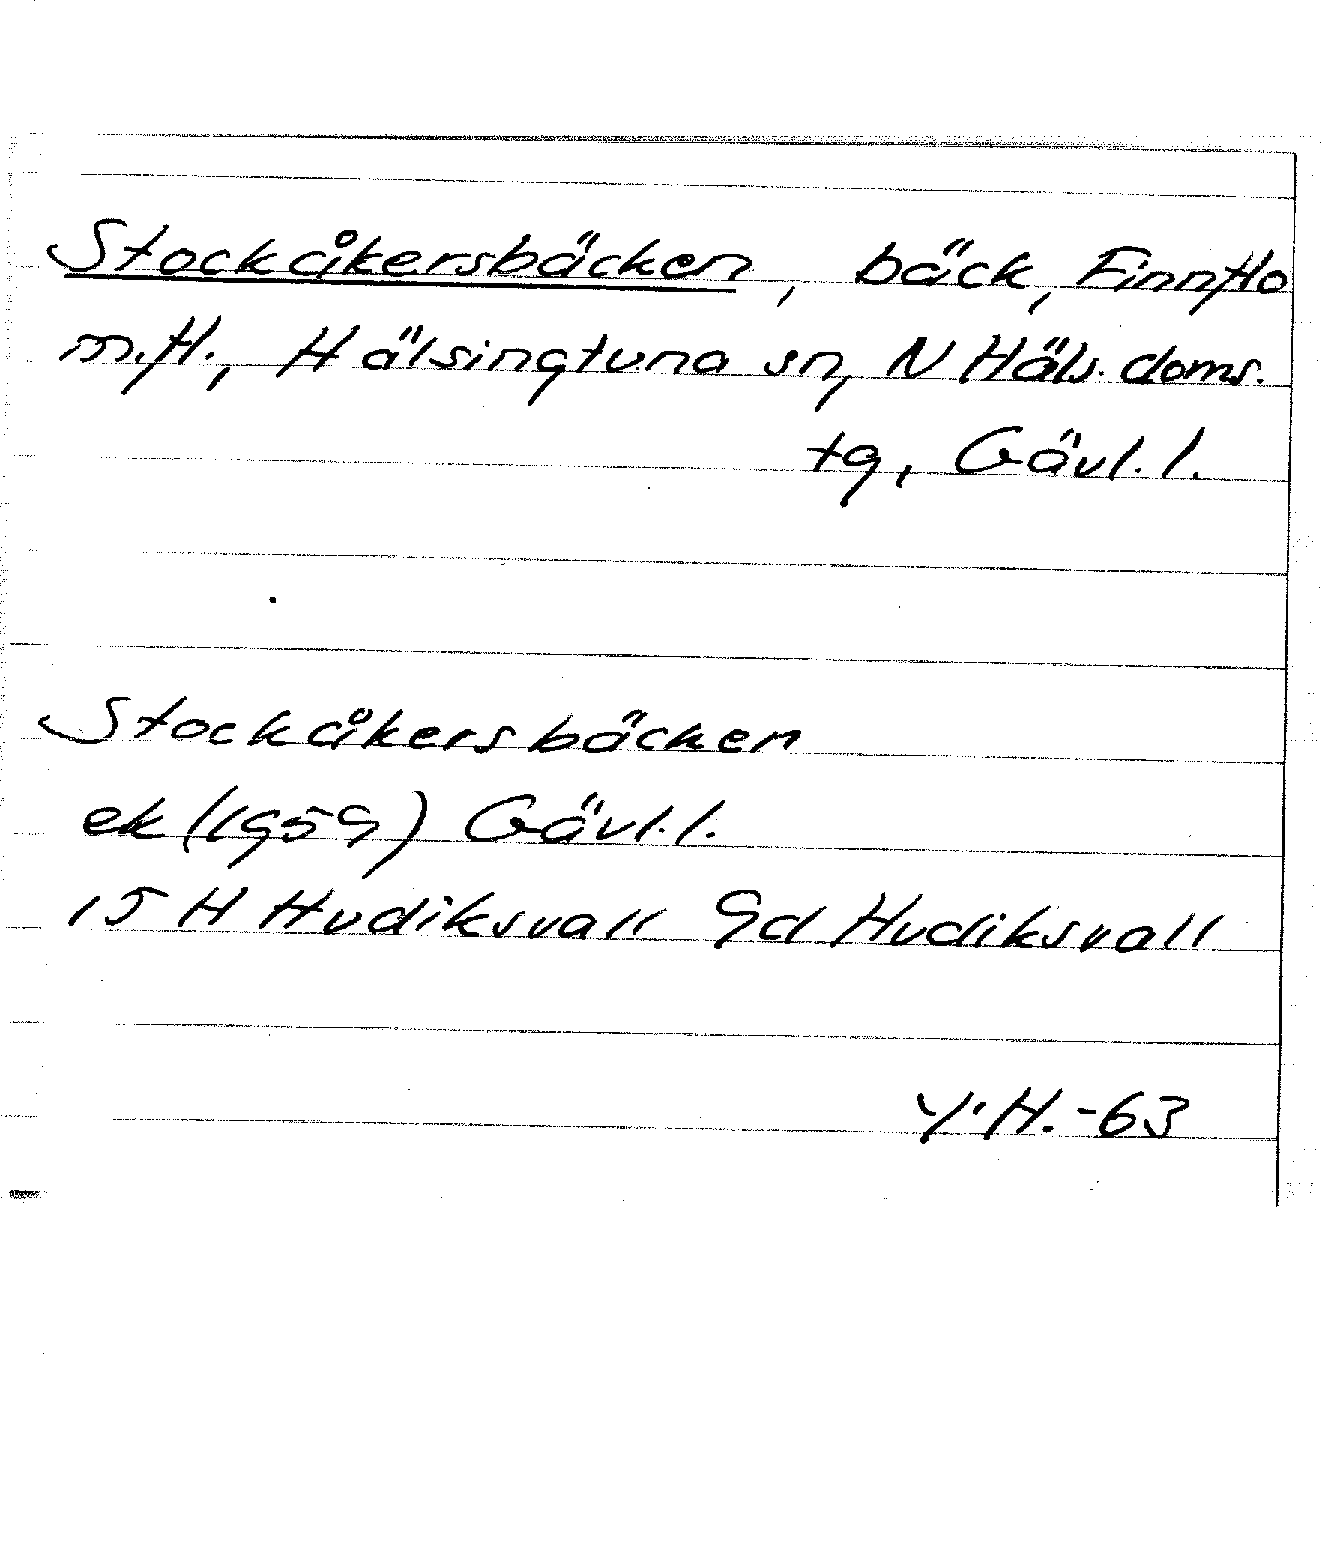 Stockåkersbäcken, bäck, Finnflo
m.fl., Hälsingtuna sn, N Häls. doms.
tg, Gävl. l.
Stockåkersbäcken
ek (1959) Gävl. l.
15 H Hudiksvall 9d Hudiksvall
Y. H. -63